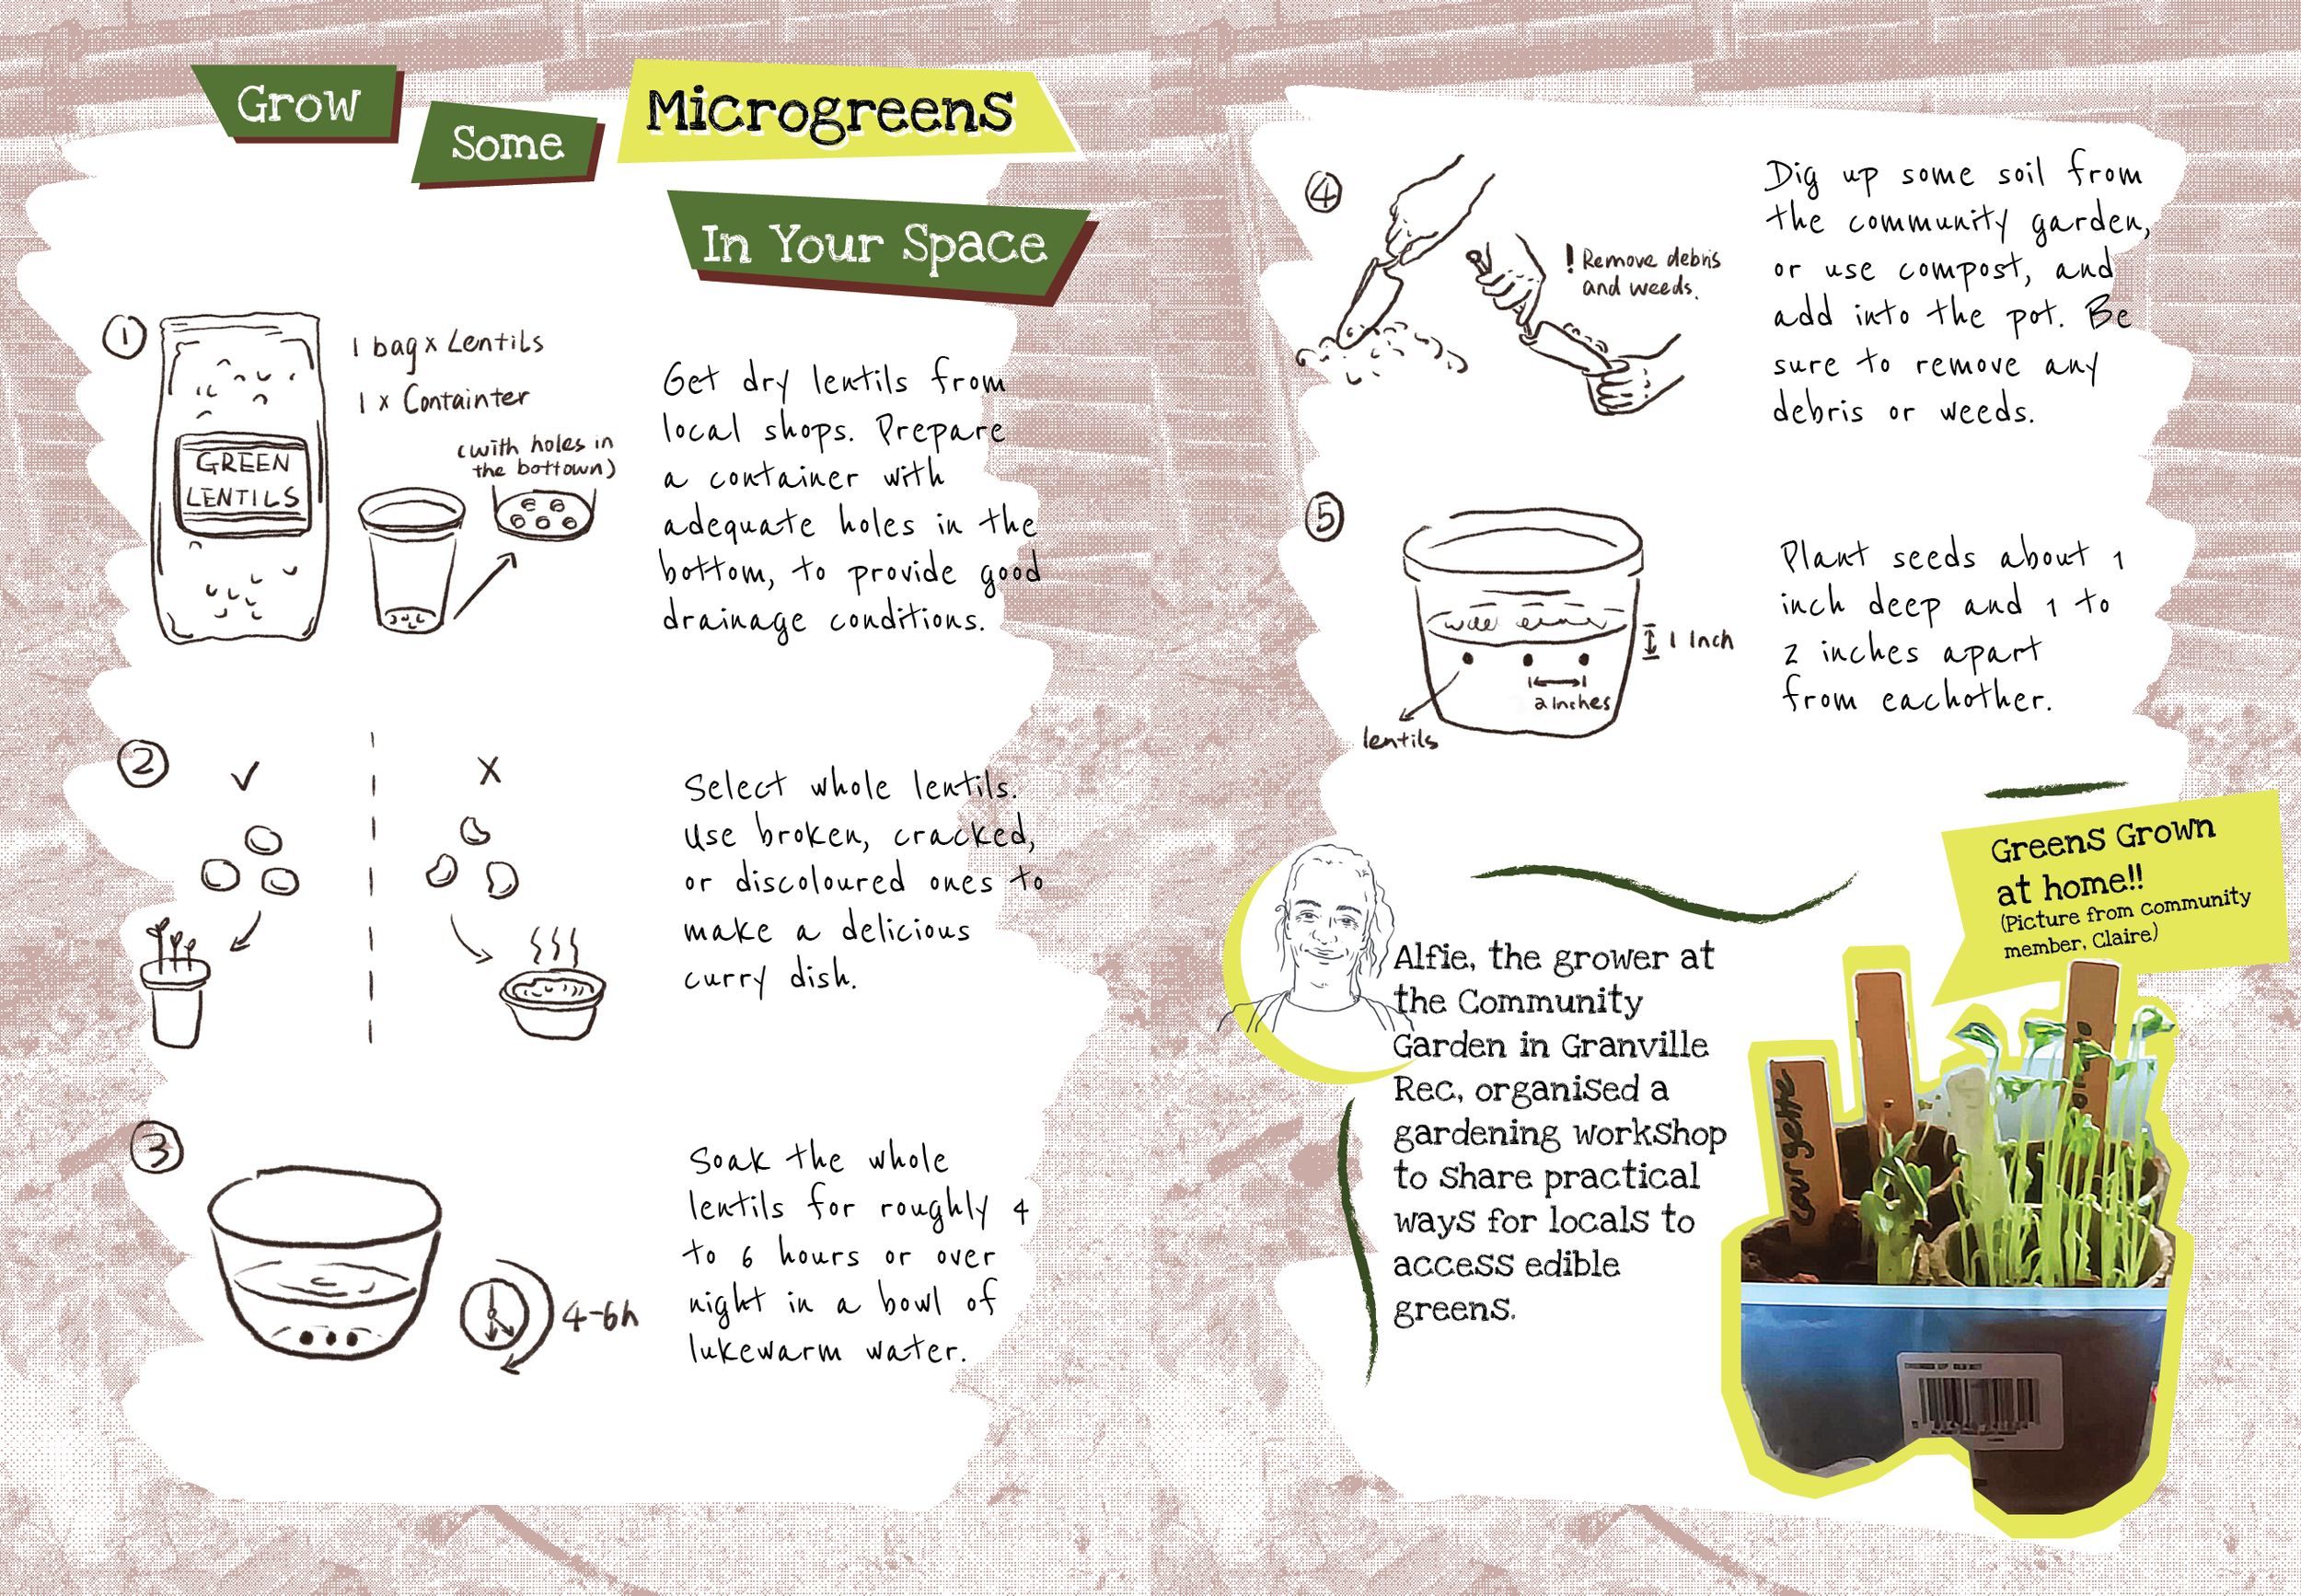 Grow
Some
Microgreens
In Your Space
1
1 bag x Lentils
1 x Containter
(with holes in
the bottown)
GREEN
LENTILS
Get dry lentils from
local shops. Prepare
a container with
adequate holes in the
bottom, to provide good
drainage conditions.
2
Select whole lentils.
Use broken, cracked,
or discoloured ones to
make a delicious
curry dish.
3
4-6h
Soak the whole
lentils for roughly 4
to 6 hours or over
night in a bowl of
lukewarm water.
4
! Remove debris
and weeds.
Dig up some soil from
the community garden,
or use compost, and
add into the pot. Be
sure to remove any
debris or weeds.
5
1 Inch
2 inches
lentils
Plant seeds about 1
inch deep and 1 to
2 inches apart
from eachother.
Greens Grown
at home!!
(Picture from community
member, Claire)
Alfie, the grower at
the Community
Garden in Granville
Rec, organised a
gardening workshop
to share practical
ways for locals to
access edible
greens.
Courgette